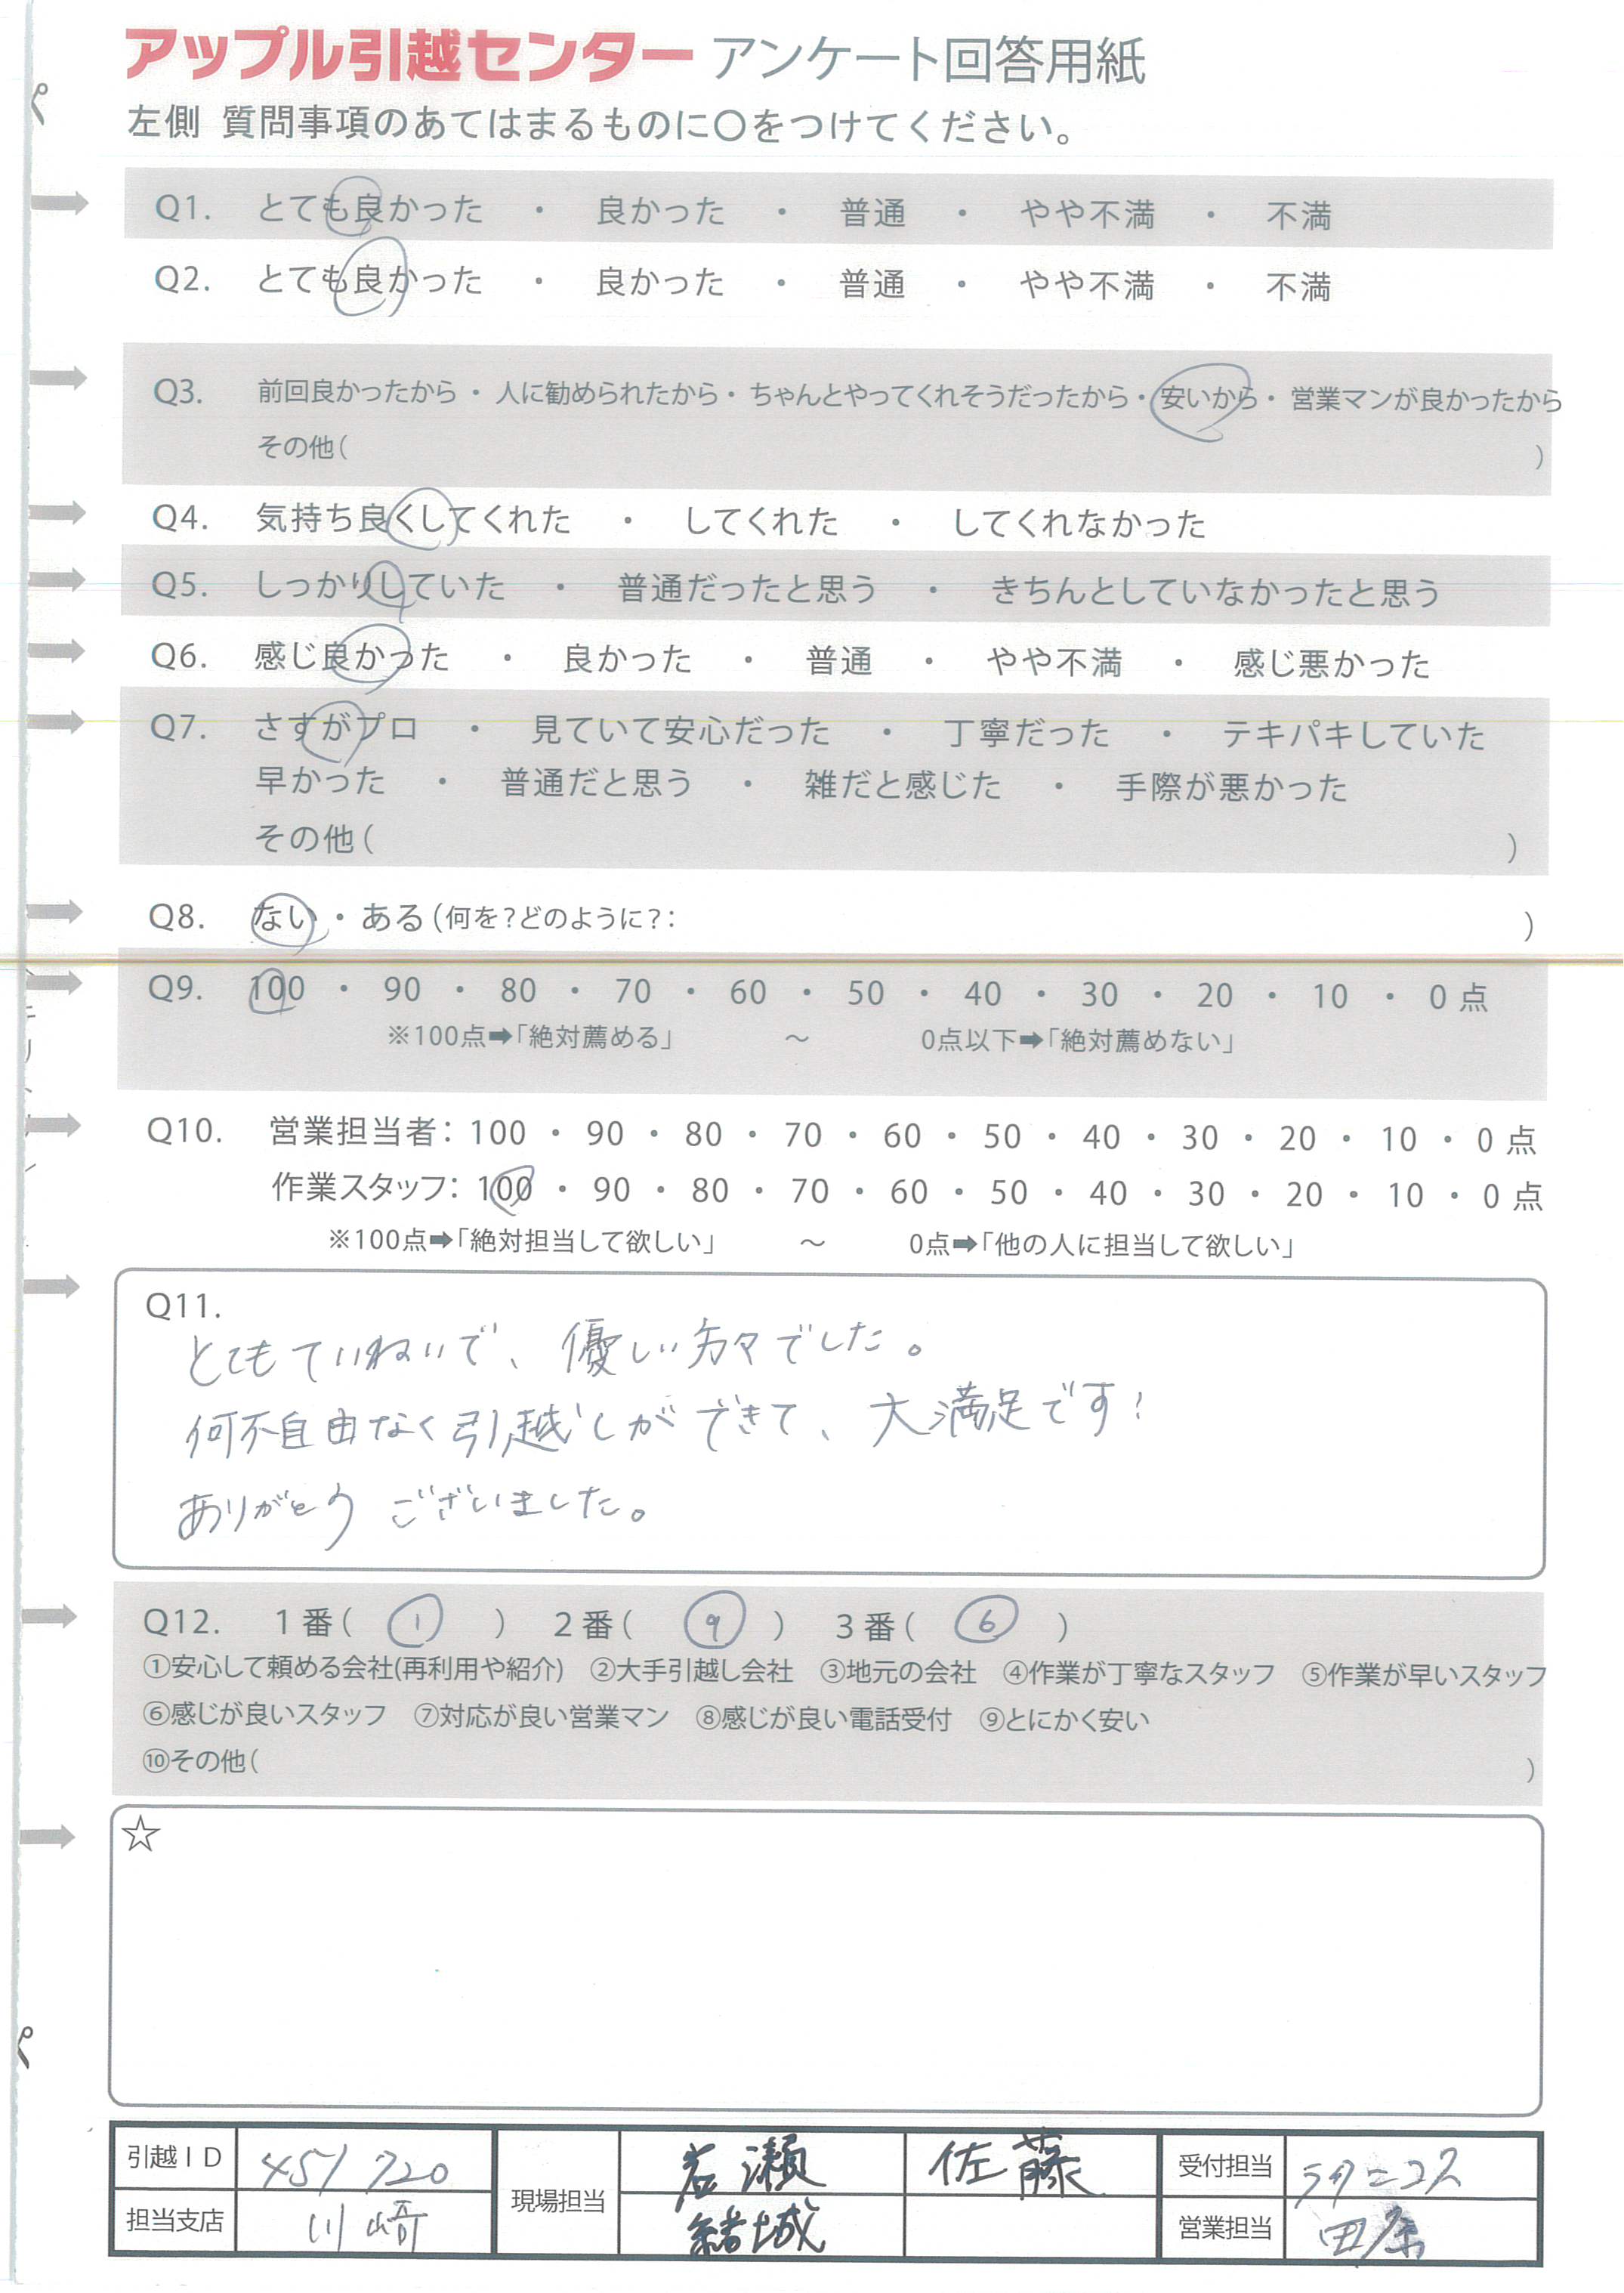 アップル引越センター アンケート回答用紙
左側 質問事項のあてはまるものに〇をつけてください。
Q1. とても良かった ・ 良かった ・ 普通 ・ やや不満 ・ 不満
Q2. とても良かった ・ 良かった ・ 普通 ・ やや不満 ・ 不満
Q3. 前回良かったから・人に勧められたから・ちゃんとやってくれそうだったから・安いから・営業マンが良かったから
その他( )
Q4. 気持ち良くしてくれた ・ してくれた ・ してくれなかった
Q5. しっかりしていた ・ 普通だったと思う ・ きちんとしていなかったと思う
Q6. 感じ良かった ・ 良かった ・ 普通 ・ やや不満 ・ 感じ悪かった
Q7. さすがプロ ・ 見ていて安心だった ・ 丁寧だった ・ テキパキしていた
早かった ・ 普通だと思う ・ 雑だと感じた ・ 手際が悪かった
その他( )
Q8. ない・ある(何を?どのように?: )
Q9. 100 ・ 90 ・ 80 ・ 70 ・ 60 ・ 50 ・ 40 ・ 30 ・ 20 ・ 10 ・ 0 点
※100点➡「絶対薦める」 ～ 0点以下➡「絶対薦めない」
Q10. 営業担当者: 100 ・ 90 ・ 80 ・ 70 ・ 60 ・ 50 ・ 40 ・ 30 ・ 20 ・ 10 ・ 0 点
作業スタッフ: 100 ・ 90 ・ 80 ・ 70 ・ 60 ・ 50 ・ 40 ・ 30 ・ 20 ・ 10 ・ 0 点
※100点➡「絶対担当して欲しい」 ～ 0点➡「他の人に担当して欲しい」
Q11.
とてもていねいで、優しい方々でした。
何不自由なく引越しができて、大満足です!
ありがとうございました。
Q12. 1番( ① ) 2番( ⑨ ) 3番( ⑥ )
①安心して頼める会社(再利用や紹介) ②大手引越し会社 ③地元の会社 ④作業が丁寧なスタッフ ⑤作業が早いスタッフ
⑥感じが良いスタッフ ⑦対応が良い営業マン ⑧感じが良い電話受付 ⑨とにかく安い
⑩その他( )
☆
引越ID 451720 現場担当 岩瀬 佐藤 受付担当
担当支店 川崎 結城 営業担当 田原